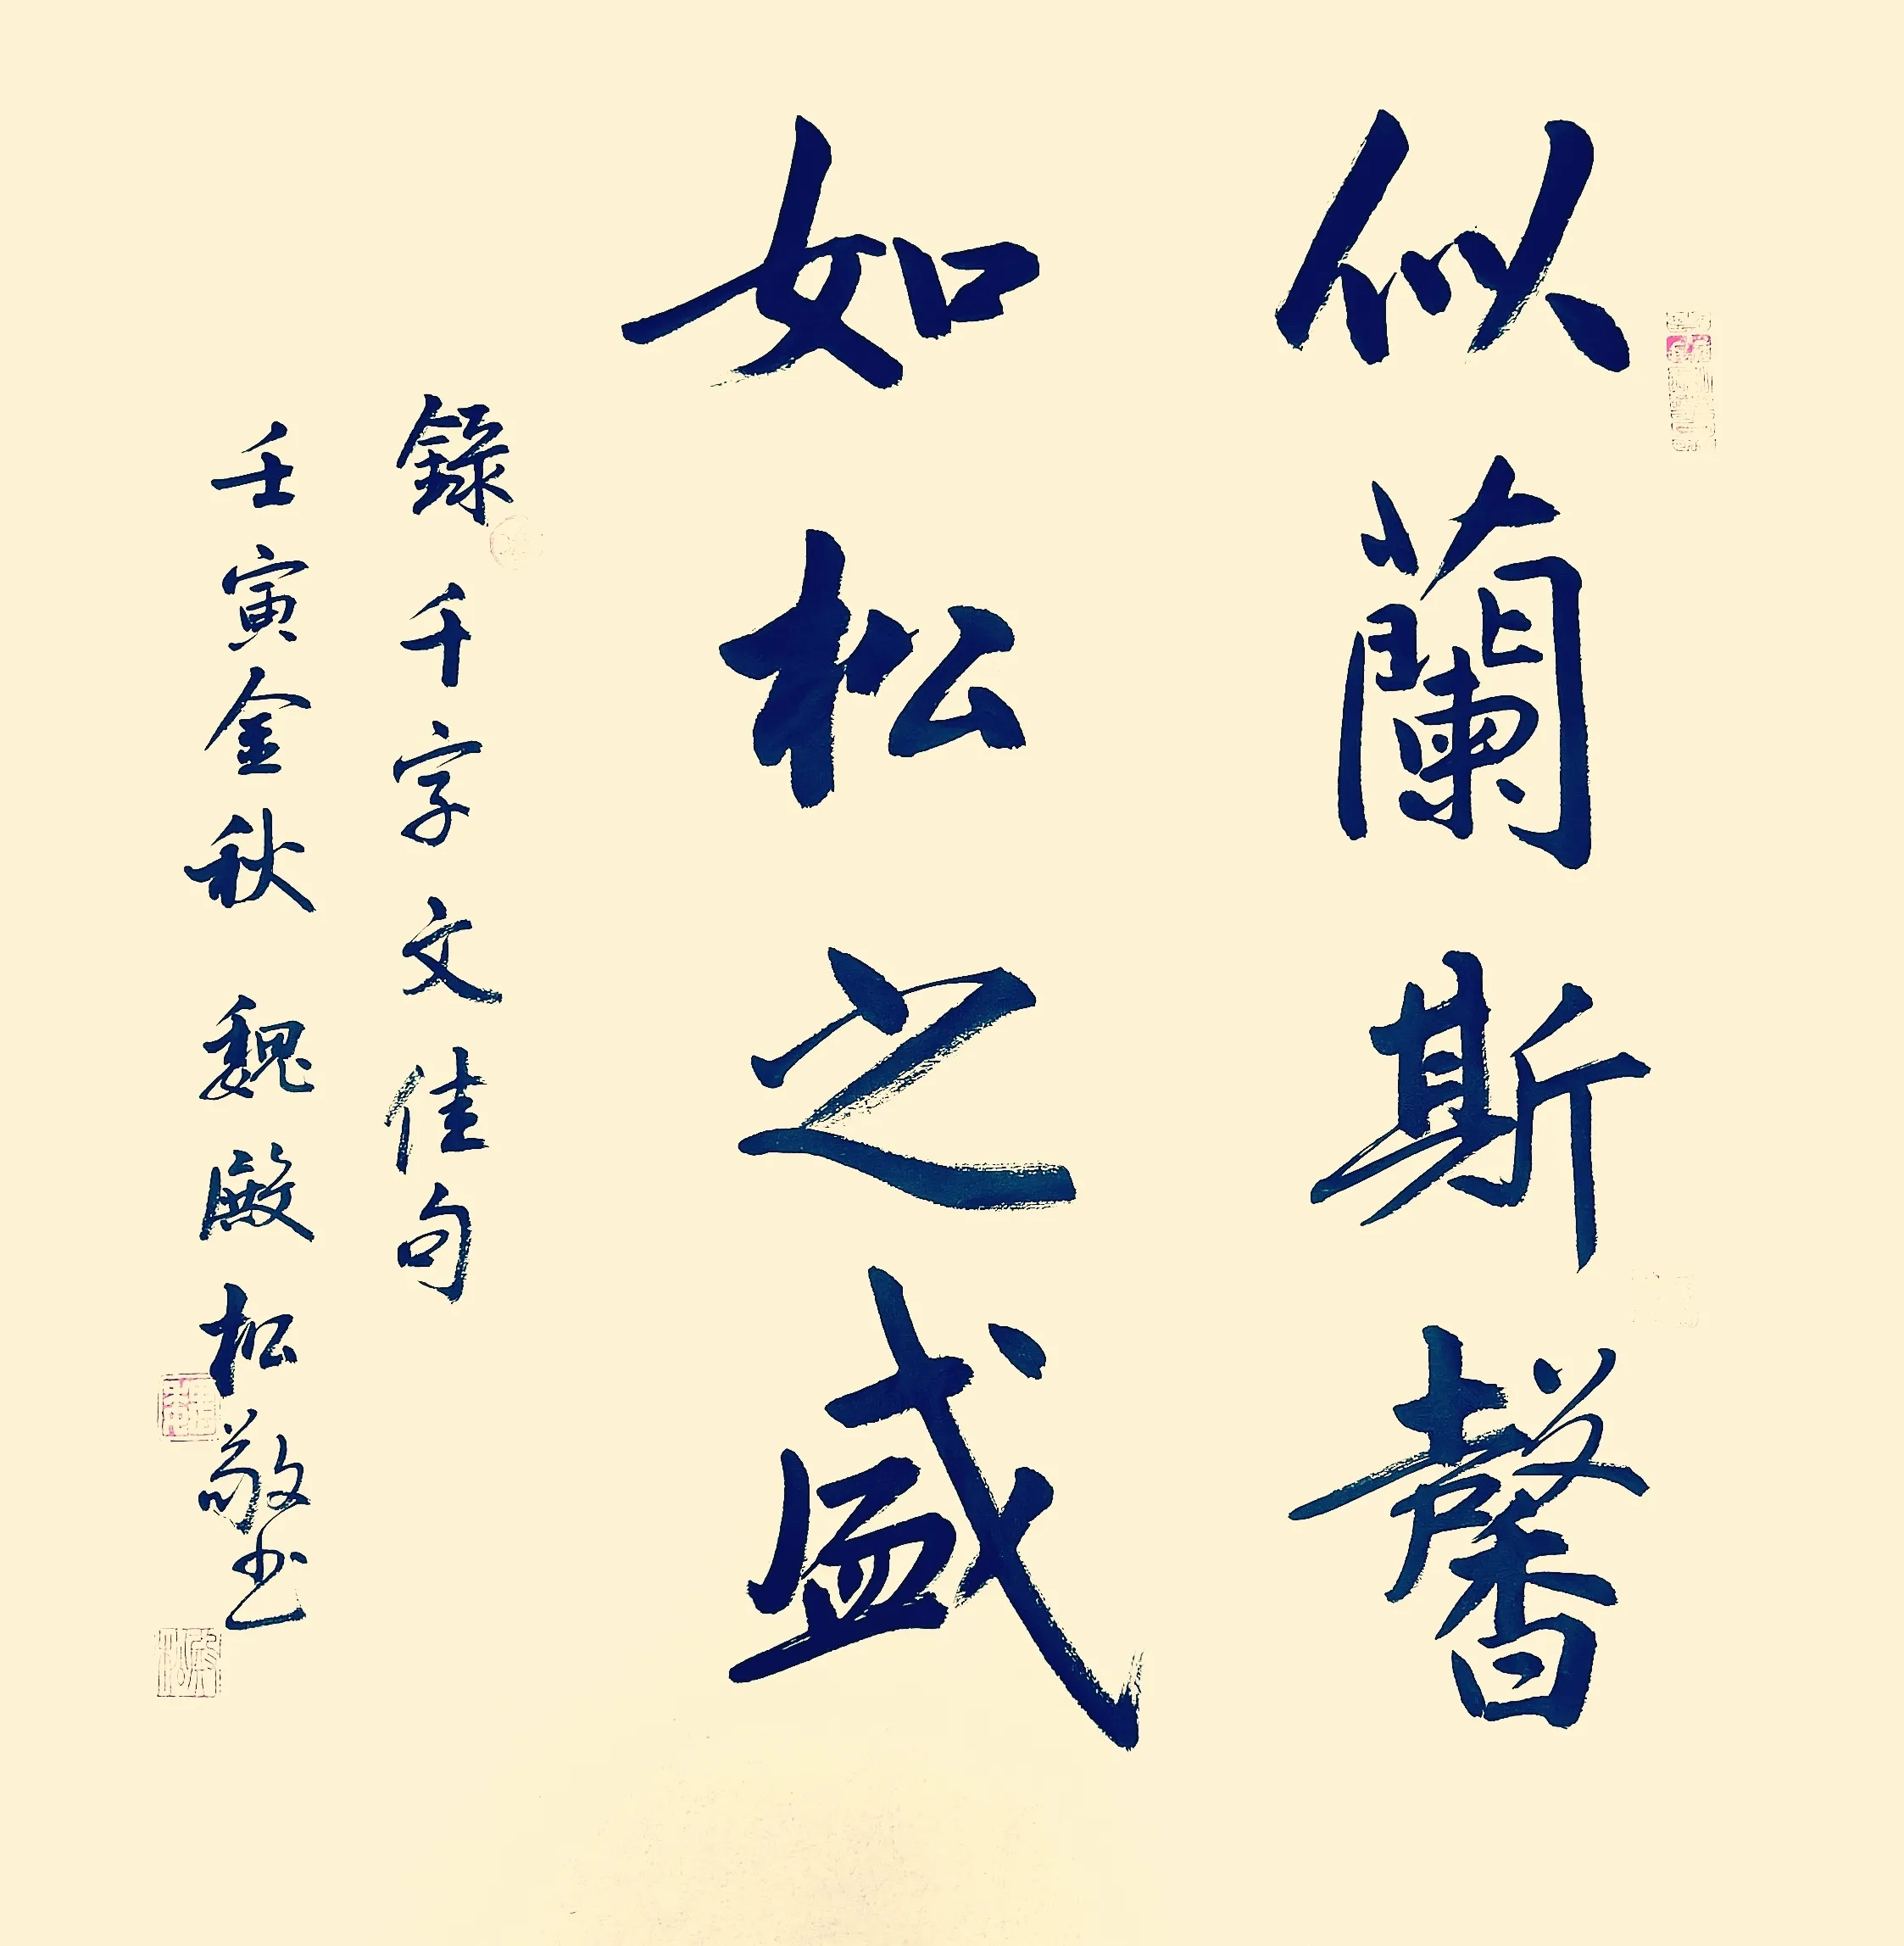 似蘭斯馨
如松之盛
錄千字文佳句
壬寅金秋魏殿松敬书